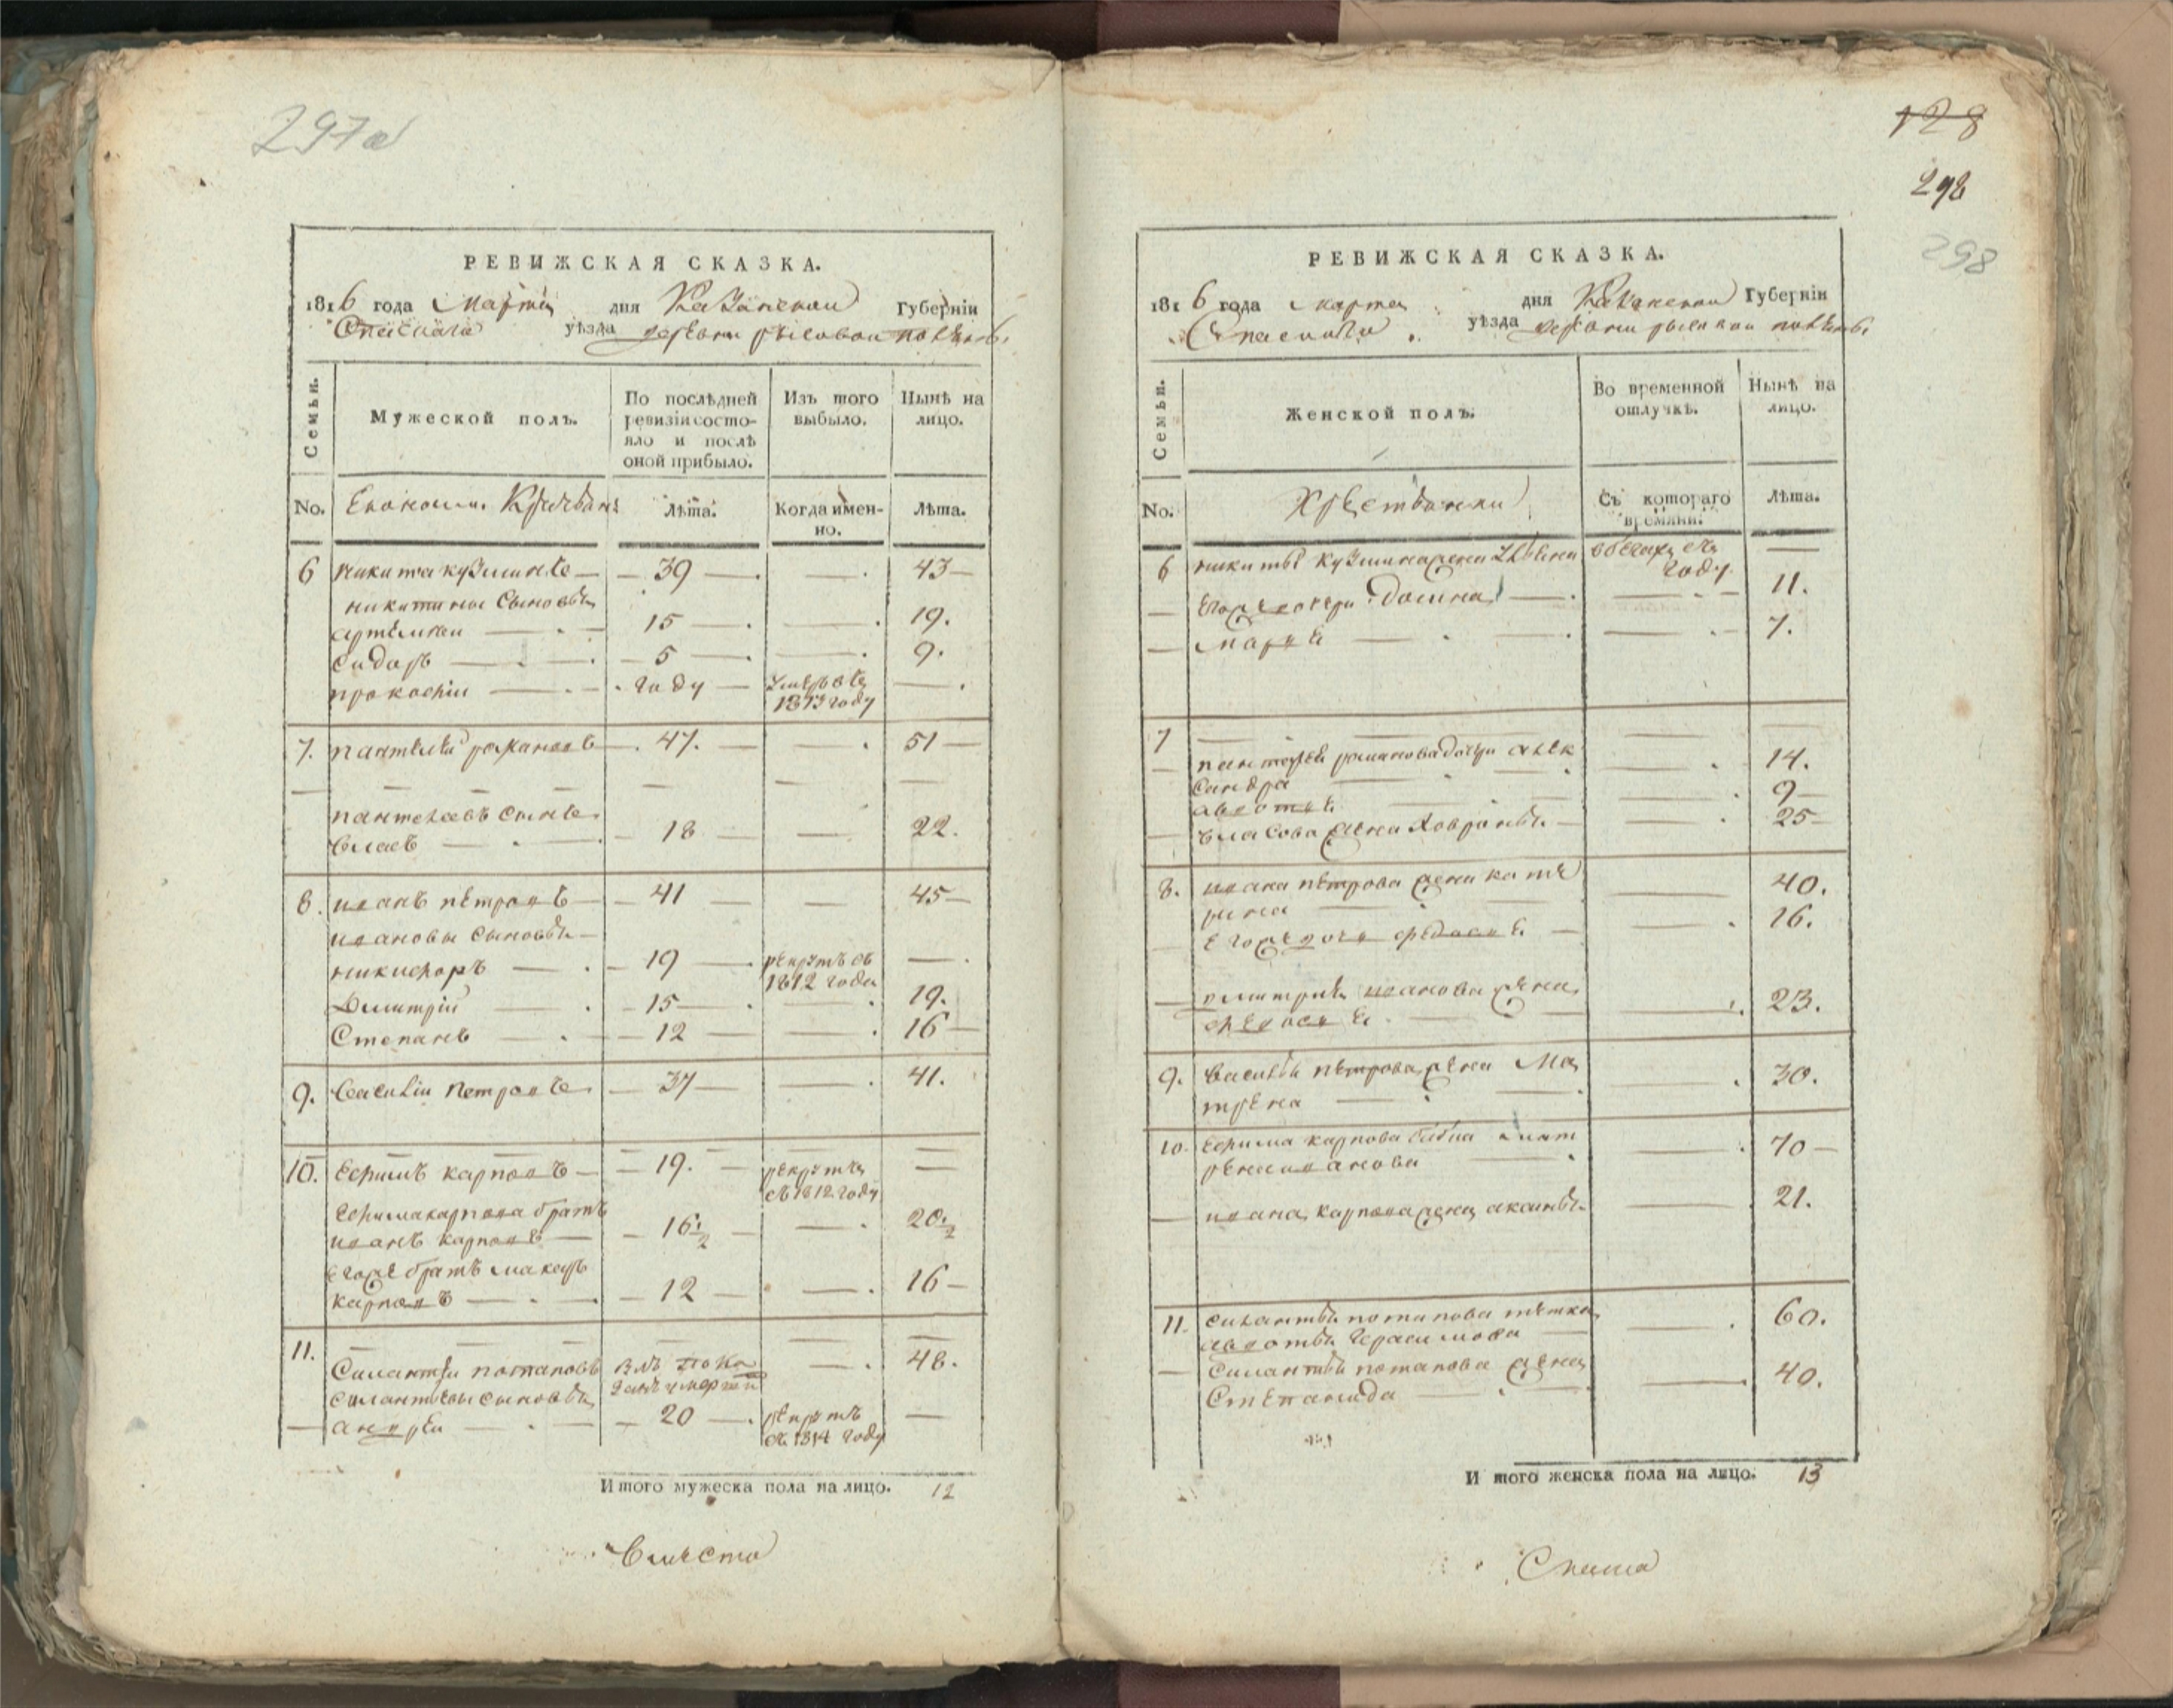 297а
РЕВИЖСКАЯ СКАЗКА.
1816 года Марта дня Казанской Губерніи
Спаскаго уѣзда деревни
Семьи.
Мужеской полъ.
По послѣдней
ревизіи состо-
яло и послѣ
оной прибыло.
Изъ того
выбыло.
Нынѣ на
лицо.
No.
Лѣта.
Когда имен-
но.
Лѣта.
6 никита кузминъ — 39 — — 43 —
никитины сыновья
артемей — 15 — — 19.
сидоръ — 5 — — 9.
прокофiи — году — умеръ въ —
1813 году
7. пантелей романовъ — 47. — — 51 —
пантелеевъ сынъ
власъ — 18 — — 22.
8. иванъ петровъ — 41 — — 45 —
ивановы сыновья —
никифоръ — 19 — рекрутъ съ —
1812 года
Дмитрiй — 15 — — 19.
Степанъ — 12 — — 16 —
9. василiи петровъ — 37 — — 41.
10. ефимъ карповъ — 19. — рекрутъ —
съ 1812 году
ефима карпова братъ
иванъ карповъ — 16 1/2 — — 20 1/2
егоже братъ макаръ
карповъ — 12 — — 16 —
11. Силантеи потаповъ — 48.
силантьевы сыновья
андреи — 20 — рекрутъ —
съ 1814 году
Итого мужеска пола на лицо. 12
Вместо
128
298
298
РЕВИЖСКАЯ СКАЗКА.
1816 года марта дня Казанской Губерніи
Спаскаго уѣзда деревни
Семьи.
Женской полъ.
Во временной
отлучкѣ.
Нынѣ на
лицо.
No.
Хрестьянки
Съ котораго
времяни.
Лѣта.
6 никиты кузмина жена году —
егоже дочери Домна — — 11.
марья — — 7.
7
пантелея романова дочери алек
сандра — — 14.
авдотья — — 9 —
власова жена ховронья — — 25 —
8. ивана петрова жена кате
рина — — 40.
егоже дочь федосья — — 16.
дмитрия иванова жена
федосья — — 23.
9. василья петрова жена Ма
трена — — 30.
10. ефима карпова мат
рена иванова — — 70 —
ивана карпова жена аксинья — 21.
11. силантья потапова тетка
авдотья герасимова — — 60.
силантья потапова жена
Степанида — — 40.
Итого женска пола на лицо. 13